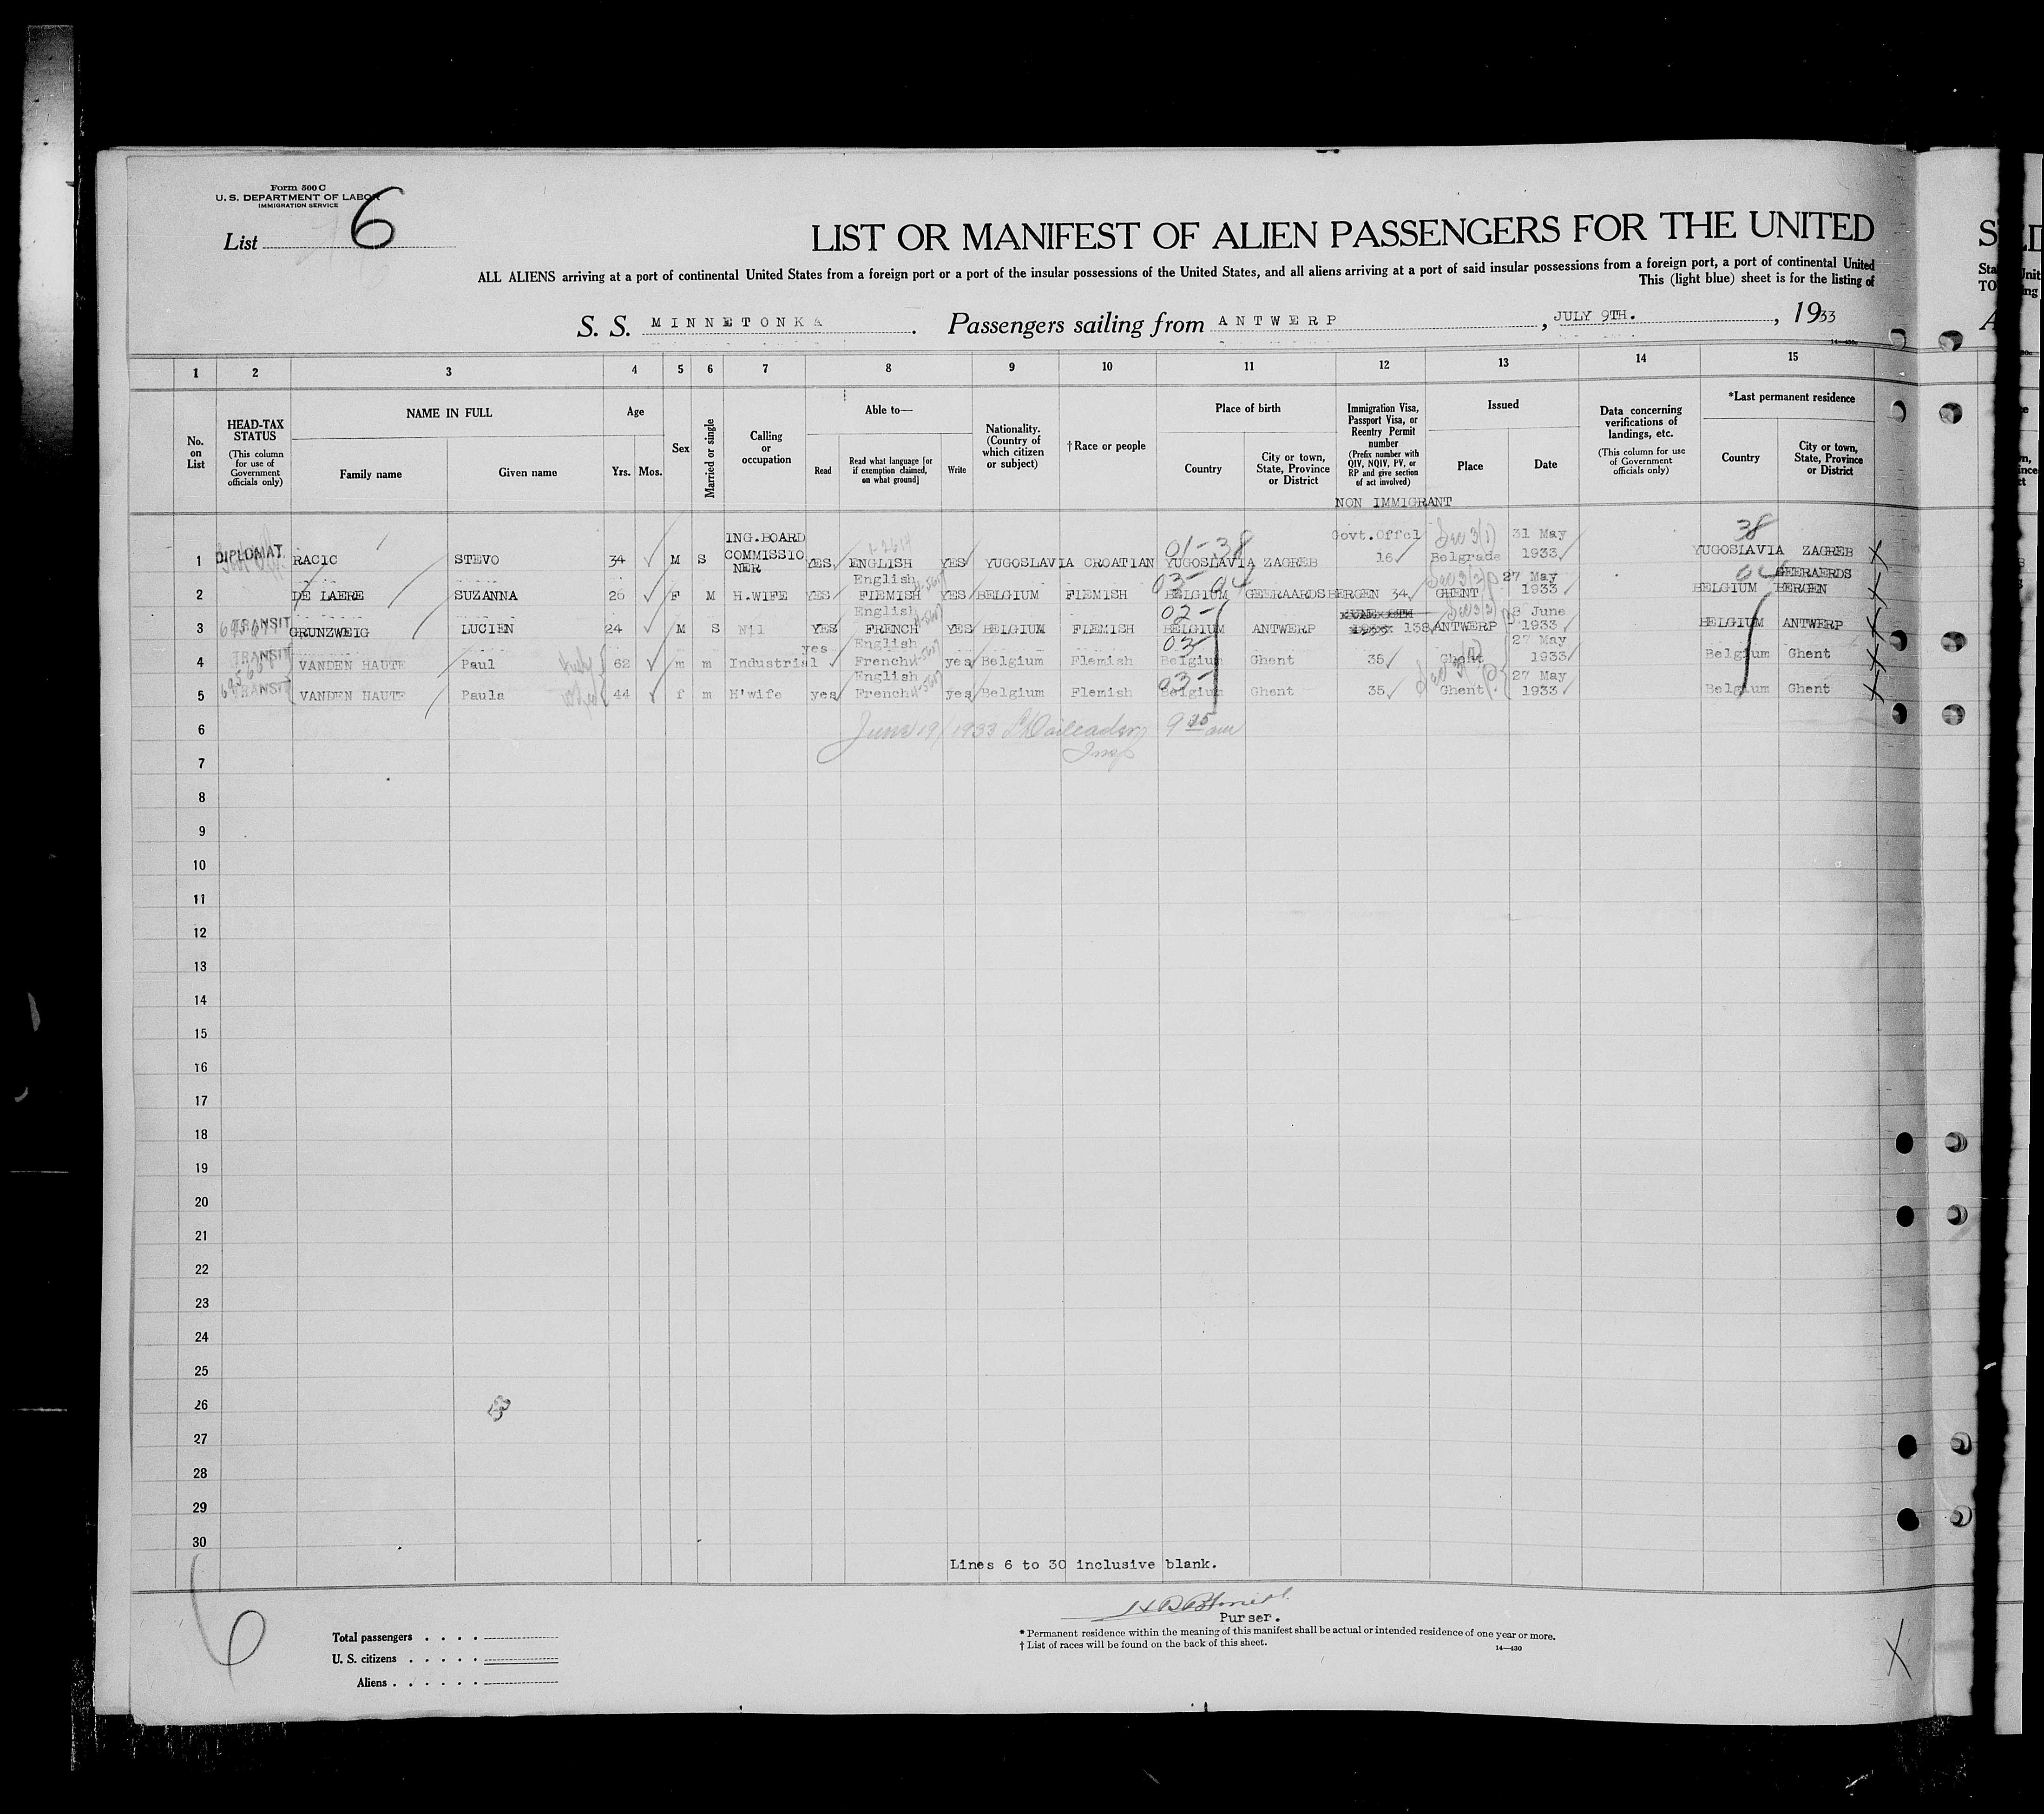 Form 500 C
U. S. DEPARTMENT OF LABOR
IMMIGRATION SERVICE
List 6
LIST OR MANIFEST OF ALIEN PASSENGERS FOR THE UNITED
ALL ALIENS arriving at a port of continental United States from a foreign port or a port of the insular possessions of the United States, and all aliens arriving at a port of said insular possessions from a foreign port, a port of continental United
This (light blue) sheet is for the listing of
S. S. MINNETONKA. Passengers sailing from ANTWERP, JULY 9TH., 1933
14-430
1 2 3 4 5 6 7 8 9 10 11 12 13 14 15
No. on List
HEAD-TAX STATUS
(This column for use of Government officials only)
NAME IN FULL
Family name Given name
Age
Yrs. Mos.
Sex
Married or single
Calling or occupation
Able to—
Read
Read what language [or if exemption claimed, on what ground]
Write
Nationality. (Country of which citizen or subject)
†Race or people
Place of birth
Country
City or town, State, Province or District
Immigration Visa, Passport Visa, or Reentry Permit number
(Prefix number with QIV, NQIV, PV, or RP and give section of act involved)
NON IMMIGRANT
Issued
Place Date
Data concerning verifications of landings, etc.
(This column for use of Government officials only)
*Last permanent residence
Country
City or town, State, Province or District
1 DIPLOMAT RACIC STEVO 34 M S ING.BOARD COMMISSIONER YES ENGLISH YES YUGOSLAVIA CROATIAN 01-38 YUGOSLAVIA ZAGREB Govt.Offcl 16 Sec 3(1) Belgrade 31 May 1933 38 YUGOSLAVIA ZAGREB
2 DE LAERE SUZANNA 26 F M H.WIFE YES English FLEMISH YES BELGIUM FLEMISH 03-04 BELGIUM GEERAARDSBERGEN 34 Sec 3(2) GHENT 27 May 1933 04 BELGIUM GEERAERDS BERGEN
3 TRANSIT GRUNZWEIG LUCIEN 24 M S Nil YES English FRENCH YES BELGIUM FLEMISH 02- BELGIUM ANTWERP JUNE 8TH 1933 138 Sec 3(2) ANTWERP 8 June 1933 BELGIUM ANTWERP
4 TRANSIT VANDEN HAUTE Paul 62 m m Industrial yes English French yes Belgium Flemish 03- Belgium Ghent 35 Ghent 27 May 1933 Belgium Ghent
5 TRANSIT VANDEN HAUTE Paula 44 f m H'wife yes English French yes Belgium Flemish 03- Belgium Ghent 35 Ghent 27 May 1933 Belgium Ghent
6 June 19/1933 9 15 am
Insp
7
8
9
10
11
12
13
14
15
16
17
18
19
20
21
22
23
24
25
26
27
28
29
30
Lines 6 to 30 inclusive blank.
Purser.
6
Total passengers
U. S. citizens
Aliens
* Permanent residence within the meaning of this manifest shall be actual or intended residence of one year or more.
† List of races will be found on the back of this sheet.
14—430